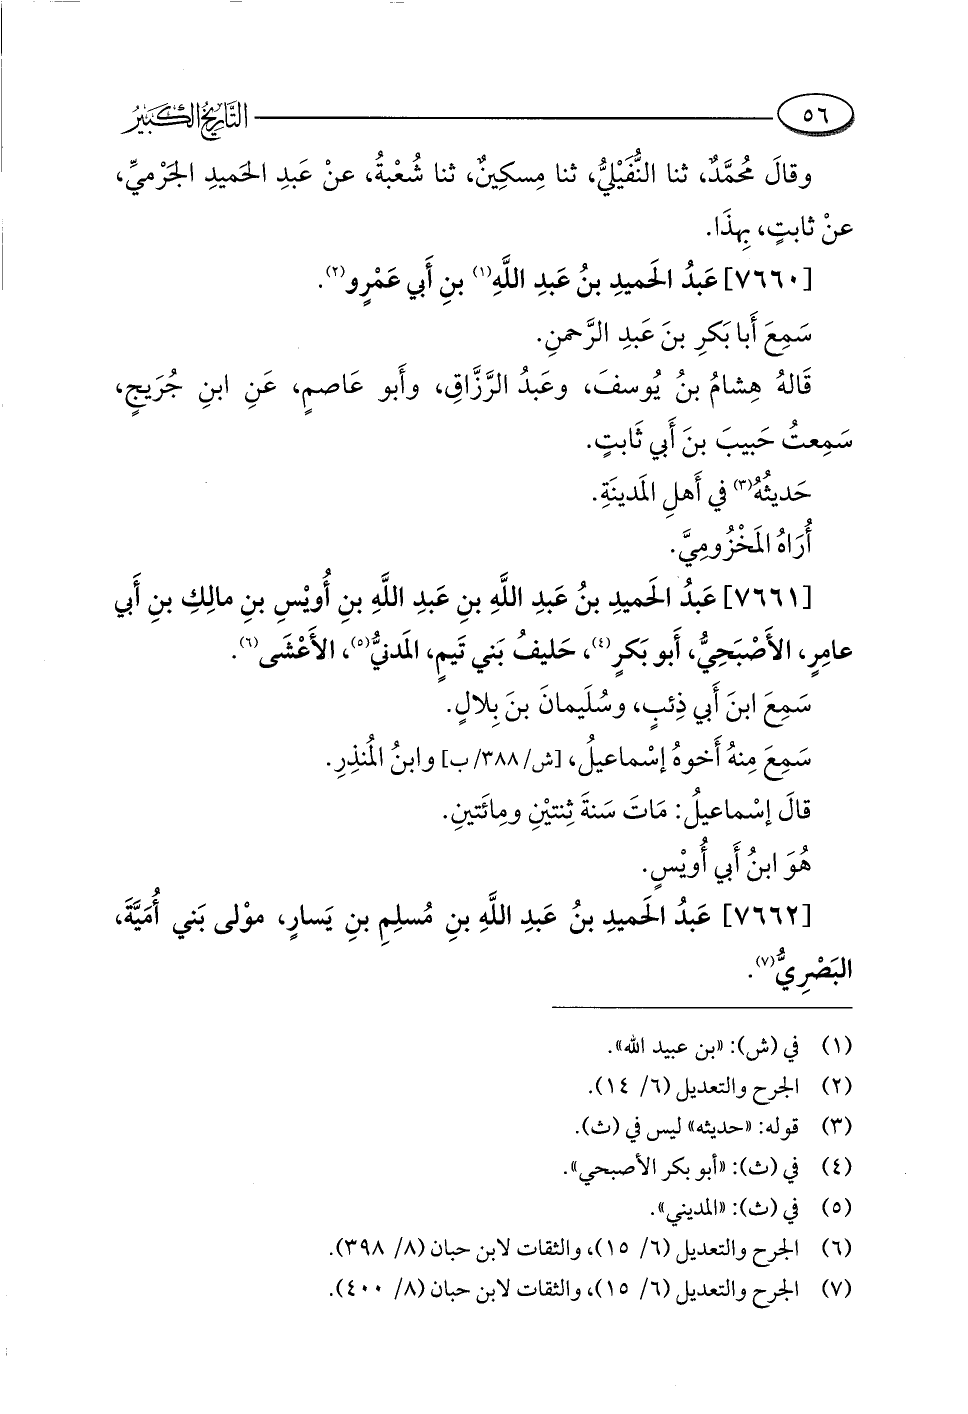 ٥٦
التَّارِيخُ الكَبِيرُ
وقالَ مُحمَّدٌ، ثنا النُّفَيْليُّ، ثنا مِسكِينٌ، ثنا شُعْبةُ، عنْ عَبدِ الحَميدِ الجَرْميِّ،
عنْ ثابتٍ، بِهذَا.
[٧٦٦٠] عَبدُ الحَميدِ بنُ عَبدِ اللَّهِ(١) بنِ أَبي عَمْرٍو(٢).
سَمِعَ أَبا بَكرِ بنَ عَبدِ الرَّحمنِ.
قَالهُ هِشامُ بنُ يُوسفَ، وعَبدُ الرَّزَّاقِ، وأَبو عَاصمٍ، عَنِ ابنِ جُرَيجٍ،
سَمِعتُ حَبيبَ بنَ أَبي ثَابتٍ.
حَديثهُ(٣) في أَهلِ المَدينَةِ.
أُرَاهُ المَخْزُومِيَّ.
[٧٦٦١] عَبدُ الحَميدِ بنُ عَبدِ اللَّهِ بنِ عَبدِ اللَّهِ بنِ أُويْسِ بنِ مالِكِ بنِ أَبي
عامِرٍ، الأَصْبَحِيُّ، أَبو بَكرٍ(٤)، حَليفُ بَني تَيمٍ، المَدنيُّ(٥)، الأَعْشَى(٦).
سَمِعَ ابنَ أَبي ذِئبٍ، وسُلَيمانَ بنَ بِلالٍ.
سَمِعَ مِنهُ أَخوهُ إسْماعيلُ، [ش/٣٨٨/ب] وابنُ المُنذِرِ.
قالَ إسْماعيلُ: مَاتَ سَنةَ ثِنتيْنِ ومِائَتينِ.
هُوَ ابنُ أَبي أُويْسٍ.
[٧٦٦٢] عَبدُ الحَميدِ بنُ عَبدِ اللَّهِ بنِ مُسلِمِ بنِ يَسارٍ، موْلى بَني أُمَيَّةَ،
البَصْرِيُّ(٧).
(١) في (ش): «بن عبيد الله».
(٢) الجرح والتعديل (٦/ ١٤).
(٣) قوله: «حديثه» ليس في (ث).
(٤) في (ث): «أبو بكر الأصبحي».
(٥) في (ث): «المديني».
(٦) الجرح والتعديل (٦/ ١٥)، والثقات لابن حبان (٨/ ٣٩٨).
(٧) الجرح والتعديل (٦/ ١٥)، والثقات لابن حبان (٨/ ٤٠٠).